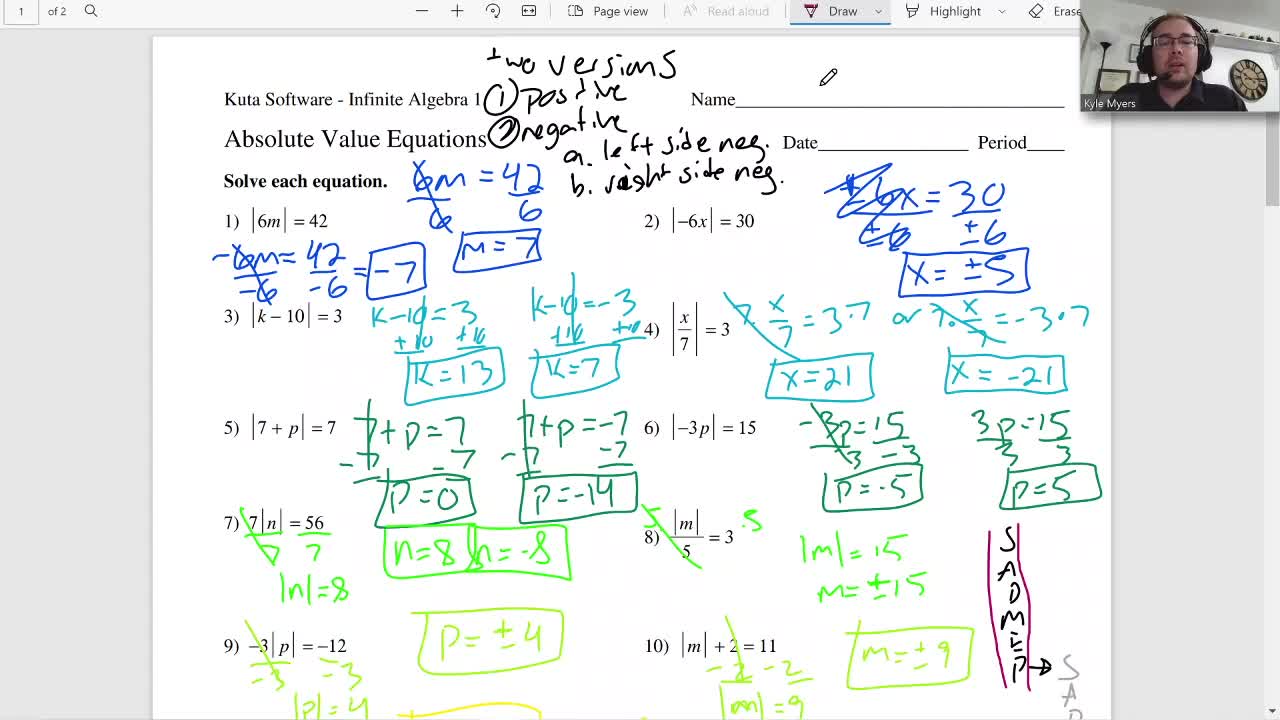 1 of 2 Page view Read aloud Draw Highlight Erase
Kyle Myers
two versions
① positive
② negative
a. left side neg.
b. right side neg.
Kuta Software - Infinite Algebra 1
Name
Absolute Value Equations
Date Period
Solve each equation.
1) |6m| = 42
6m = 42
6 6
m = 7
-6m = 42 = -7
-6 -6
2) |−6x| = 30
±6x = 30
±6 ±6
x = ±5
3) |k − 10| = 3
k-10 = 3
+10 +10
k = 13
k-10 = -3
+10 +10
k = 7
4) |x/7| = 3
7. x/7 = 3·7 or 7. x/7 = -3·7
x = 21
x = -21
5) |7 + p| = 7
7+p = 7
-7 -7
p = 0
7+p = -7
-7 -7
p = -14
6) |−3p| = 15
-3p = 15
-3 -3
p = -5
3p = 15
3 3
p = 5
7) 7|n| = 56
7 7
|n| = 8
n = 8 n = -8
8) |m|/5 = 3
5. .5
|m| = 15
m = ±15
9) −3|p| = −12
-3 -3
|p| = 4
p = ±4
10) |m| + 2 = 11
-2 -2
|m| = 9
m = ±9
S
A
D
M
E
P → S
A
D